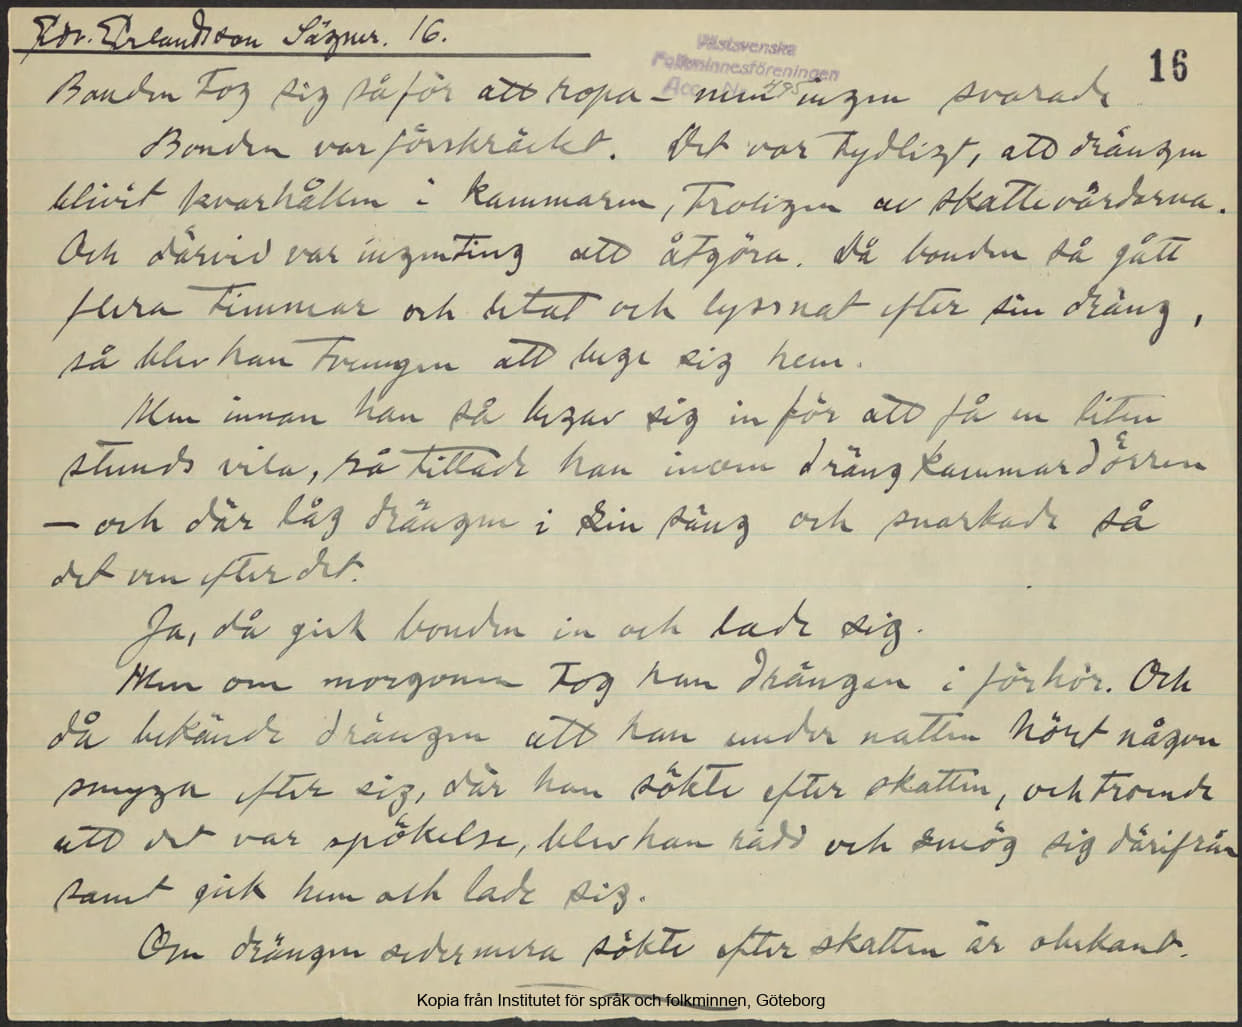 Edv. Erlandsson Sägner. 16.
Västsvenska
Folkminnesföreningen
Acc. Nr. 495
16
Bonden tog sig så för att ropa – men ingen svarade
Bonden var förskräckt. Det var tydligt, att drängen
blivit kvarhållen i kammaren, troligen av skattevårdarna.
Och därvid var ingenting att åtgöra. Då bonden så gått
flera timmar och letat och lyssnat efter sin dräng,
så blev han tvungen att bege sig hem.
Men innan han så begav sig in för att få en liten
stunds vila, så tittade han inom drängkammardörren
– och där låg drängen i sin säng och snarkade så
det ven efter det.
Ja, då gick bonden in och lade sig.
Men om morgonen tog han drängen i förhör. Och
då bekände drängen att han under natten hört någon
smyga efter sig, där han sökte efter skatten, och troende
att det var spökelse, blev han rädd och smög sig därifrån
samt gick hem och lade sig.
Om drängen sedermera sökte efter skatten är obekant.
Kopia från Institutet för språk och folkminnen, Göteborg